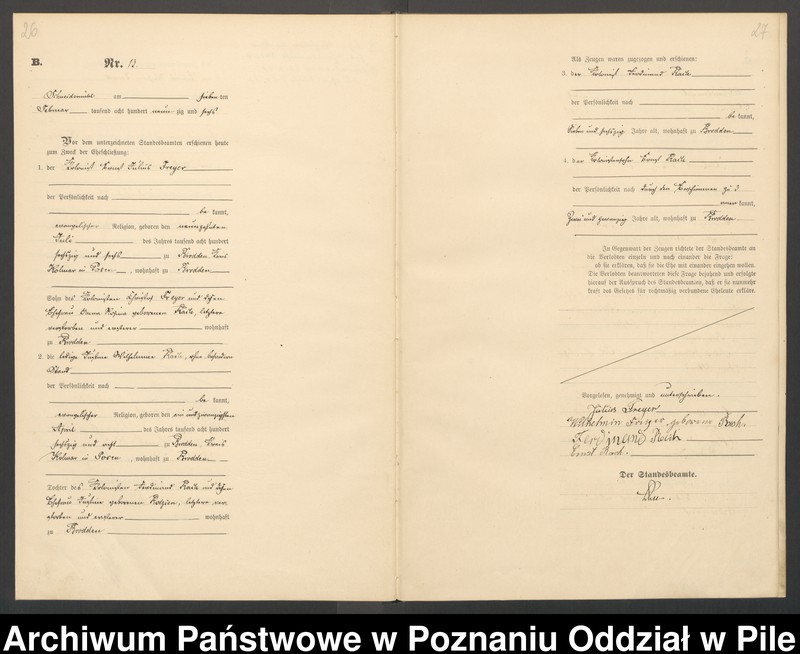 26
B. Nr. 13
Schneidemühl am sieben ten
Februar tausend acht hundert neun zig und sechs
Vor dem unterzeichneten Standesbeamten erschienen heute
zum Zweck der Eheschließung:
1. der Kolonist Ernst Julius Freyer
der Persönlichkeit nach
be kannt,
evangelischer Religion, geboren den neunzehnten
Juli des Jahres tausend acht hundert
sechzig und sechs zu Brodden, Kreis
Kolmar in Posen, wohnhaft zu Brodden
Sohn des Kolonisten Freyer und dessen
Ehefrau Anna Rosina geborenen letztere
verstorben und ersterer wohnhaft
zu Brodden
2. die ledige Justine Wilhelmine ohne besonderen
Stand
der Persönlichkeit nach
be kannt,
evangelischer Religion, geboren den ein und zwanzigsten
April des Jahres tausend acht hundert
sechzig und acht zu Brodden, Kreis
Kolmar in Posen, wohnhaft zu Brodden
Tochter des Kolonisten Ferdinand und dessen
Ehefrau Justine geborenen letztere ver-
storben und ersterer wohnhaft
zu Brodden
27
Als Zeugen waren zugezogen und erschienen:
3. der Kolonist Ferdinand
der Persönlichkeit nach
be kannt,
sieben und sechzig Jahre alt, wohnhaft zu Brodden
4. der Kolonistensohn Ernst
der Persönlichkeit nach durch den zu 3
kannt,
zwei und zwanzig Jahre alt, wohnhaft zu Brodden.
In Gegenwart der Zeugen richtete der Standesbeamte an
die Verlobten einzeln und nach einander die Frage:
ob sie erklären, daß sie die Ehe mit einander eingehen wollen.
Die Verlobten beantworteten diese Frage bejahend und erfolgte
hierauf der Ausspruch des Standesbeamten, daß er sie nunmehr
kraft des Gesetzes für rechtmäßig verbundene Eheleute erkläre.
Vorgelesen, genehmigt und unterschrieben.
Julius Freyer
Wilhelmin Freyer geborene Rach.
Ferdjnand Rach
Ernst Rach.
Der Standesbeamte.
Archiwum Państwowe w Poznaniu Oddział w Pile